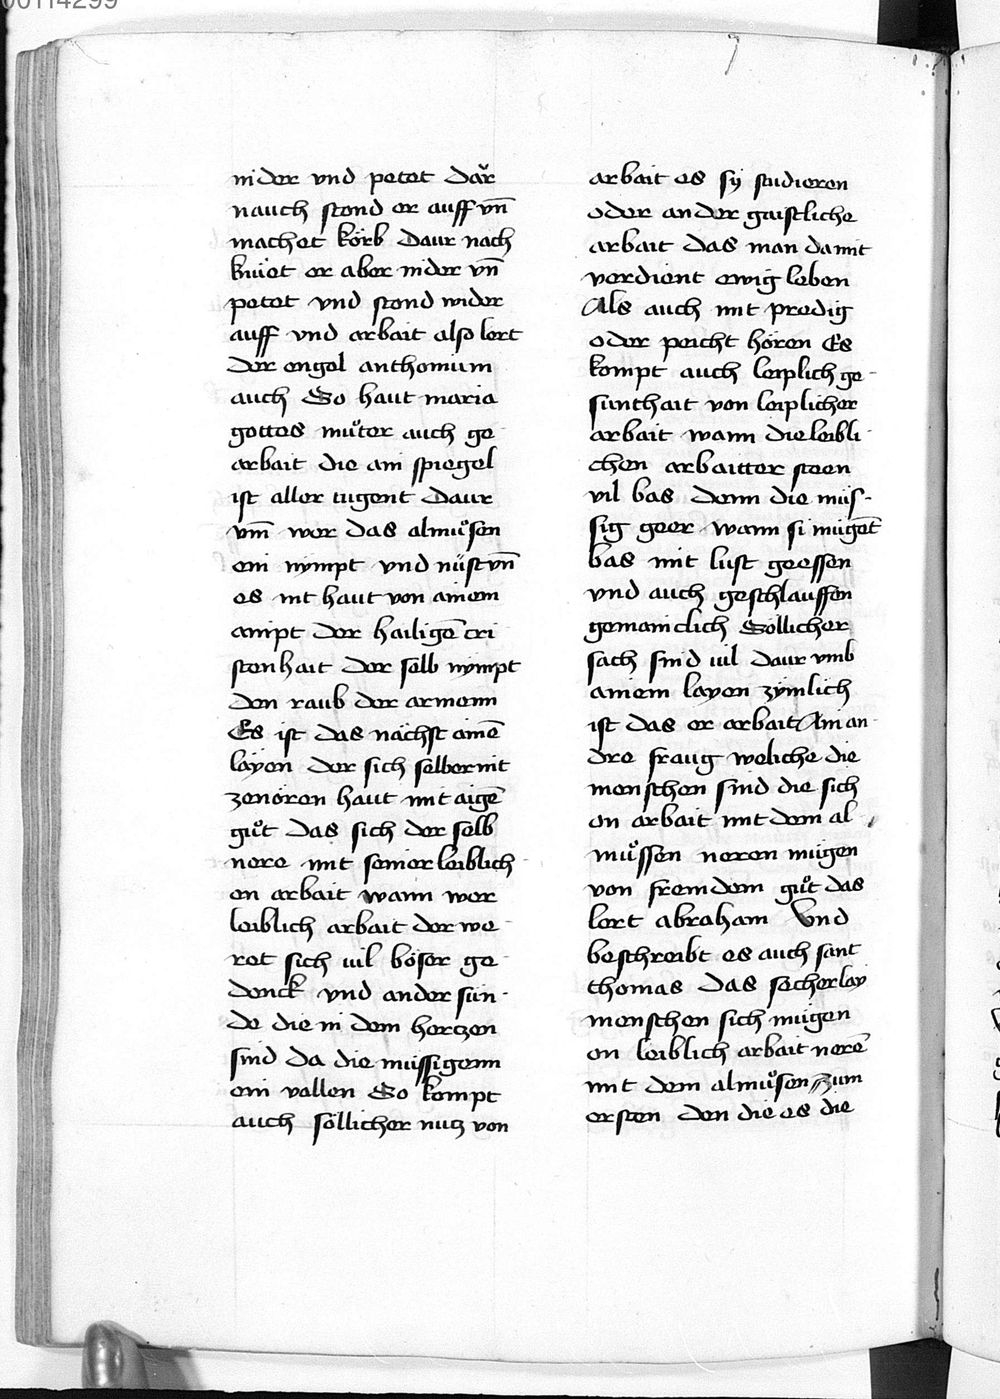 00114299
nider vnd petet dar
nauch stond er auff vn̄
machet körb Daur nach
kniet er aber nider vn̄
petet vnd stond wider
auff vnd arbait also lert
der engel anthonium
auch So haut maria
gottes můter auch ge
arbait die ain spiegel
ist aller tugent Daur
vm̄ wer das almůsen
ein nympt vnd nüst vn̄
es nit haut von ainem
ampt der hailigē cri
stenhait der selb nympt
den raub der armenn
Es ist das nächst ainē
layen der sich selber nit
zeneren haut mit aigē
gůt das sich der selb
nere mit seiner leiblich
en arbait wann wer
leiblich arbait der we
ret sich uil böser ge
denck vnd ander sün-
de die in dem hertzen
sind da die müssigenn
ein vallen So kompt
auch söllicher nutz von
arbait es sy studieren
oder ander gaistliche
arbait das man damit
verdient ewig leben
Als auch mit predig
oder peicht hören Es
kompt auch leiplich ge-
sunthait von leiplicher
arbait wann die leibli-
chen arbaitter steen
vil bas denn die müs-
sig geer wann si mügēt
bas mit lust geessen
vnd auch geschlauffen
gemainclich Söllicher
sach sind uil daur vmb
ainem layen zymlich
ist das er arbait Ain an-
dre fraug weliche die
menschen sind die sich
on arbait mit dem al
můssen neren mügen
von fremdem gůt das
lert abraham Vnd
beschreibt es auch sant
thomas das secherlay
menschen sich mügen
on leiblich arbait nerē
mit dem almůsen Zum
ersten den die es die